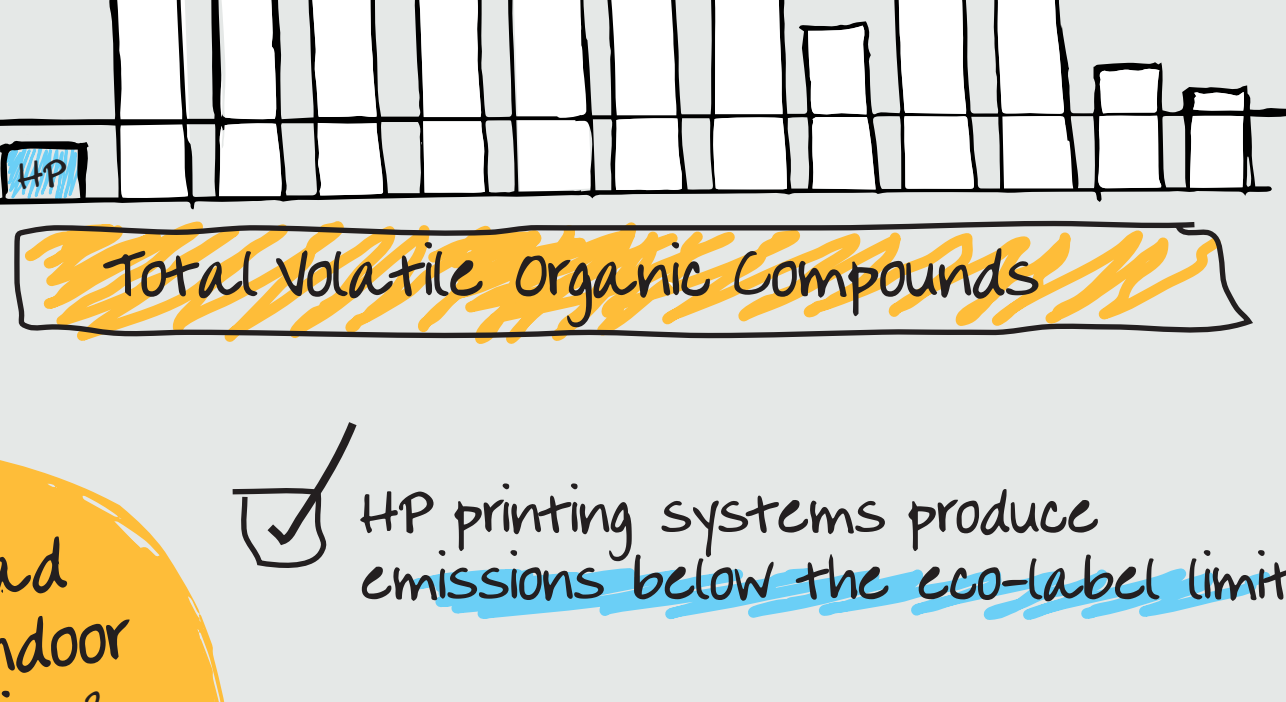 HP
Total Volatile Organic Compounds
HP printing systems produce
emissions below the eco-label limit